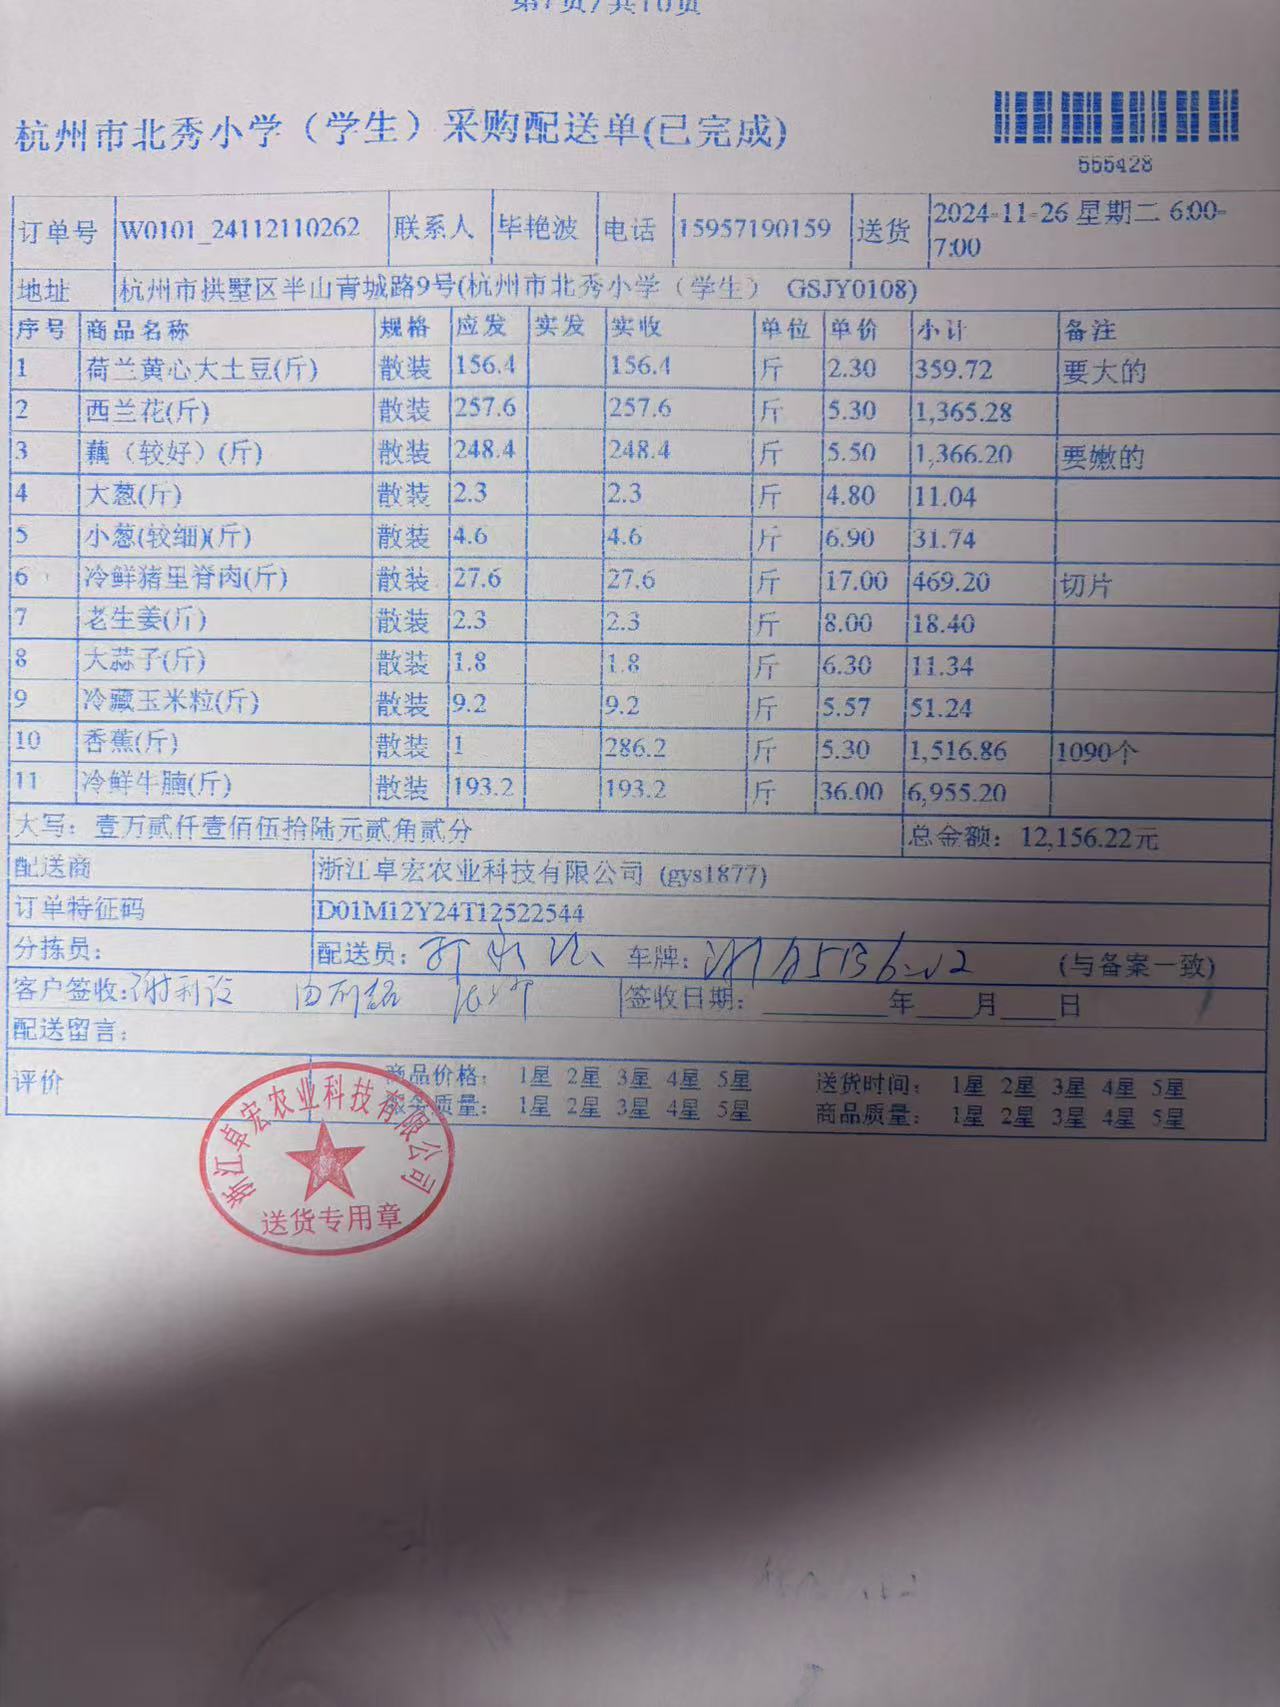 第1页/共10页
杭州市北秀小学（学生）采购配送单(已完成)
555428
订单号 W0101_24112110262 联系人 毕艳波 电话 15957190159 送货 2024-11-26 星期二 6:00-
7:00
地址 杭州市拱墅区半山青城路9号(杭州市北秀小学（学生） GSJY0108)
序号 商品名称 规格 应发 实发 实收 单位 单价 小计 备注
1 荷兰黄心大土豆(斤) 散装 156.4 156.4 斤 2.30 359.72 要大的
2 西兰花(斤) 散装 257.6 257.6 斤 5.30 1,365.28
3 藕（较好）(斤) 散装 248.4 248.4 斤 5.50 1,366.20 要嫩的
4 大葱(斤) 散装 2.3 2.3 斤 4.80 11.04
5 小葱(较细)(斤) 散装 4.6 4.6 斤 6.90 31.74
6 冷鲜猪里脊肉(斤) 散装 27.6 27.6 斤 17.00 469.20 切片
7 老生姜(斤) 散装 2.3 2.3 斤 8.00 18.40
8 大蒜子(斤) 散装 1.8 1.8 斤 6.30 11.34
9 冷藏玉米粒(斤) 散装 9.2 9.2 斤 5.57 51.24
10 香蕉(斤) 散装 1 286.2 斤 5.30 1,516.86 1090个
11 冷鲜牛腩(斤) 散装 193.2 193.2 斤 36.00 6,955.20
大写：壹万贰仟壹佰伍拾陆元贰角贰分 总金额：12,156.22元
配送商 浙江卓宏农业科技有限公司 (gys1877)
订单特征码 D01M12Y24T12522544
分拣员： 配送员： 车牌： (与备案一致)
客户签收: 签收日期：________年____月____日
配送留言：
评价 商品价格： 1星 2星 3星 4星 5星 送货时间： 1星 2星 3星 4星 5星
服务质量： 1星 2星 3星 4星 5星 商品质量： 1星 2星 3星 4星 5星
浙江卓宏农业科技有限公司
送货专用章